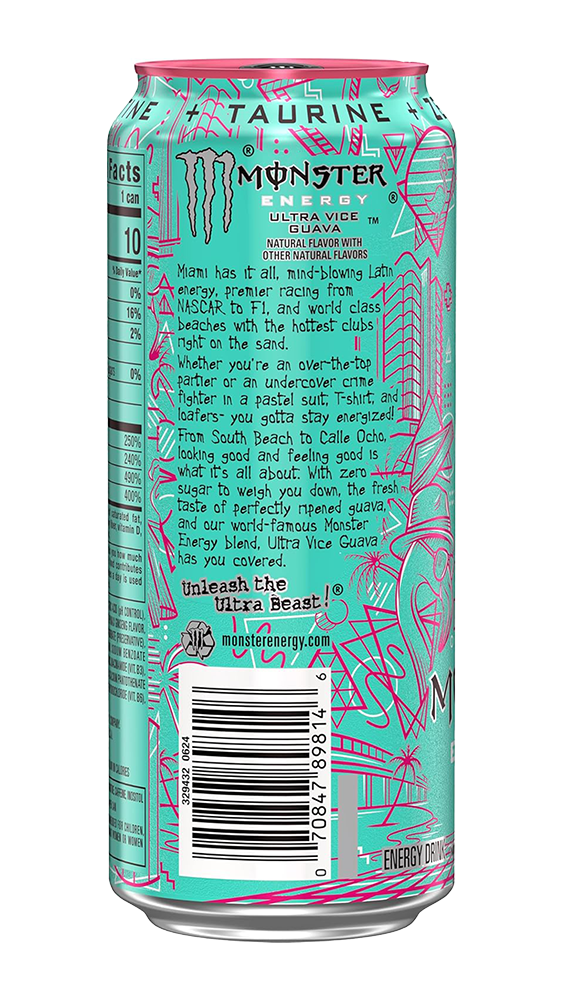 + TAURINE +
MONSTER
ENERGY ®
ULTRA VICE
GUAVA ™
NATURAL FLAVOR WITH
OTHER NATURAL FLAVORS
Miami has it all, mind-blowing Latin
energy, premier racing from
NASCAR to F1, and world class
beaches with the hottest clubs
right on the sand.
Whether you're an over-the-top
partier or an undercover crime
fighter in a pastel suit, T-shirt, and
loafers- you gotta stay energized!
From South Beach to Calle Ocho,
looking good and feeling good is
what it's all about. With zero
sugar to weigh you down, the fresh
taste of perfectly ripened guava,
and our world-famous Monster
Energy blend, Ultra Vice Guava
has you covered.
Unleash the
Ultra Beast!®
monsterenergy.com
329432 0624
0 70847 89814 6
ENERGY DRINK
Facts
1 can
10
% Daily Value*
0%
16%
2%
0%
250%
240%
490%
400%